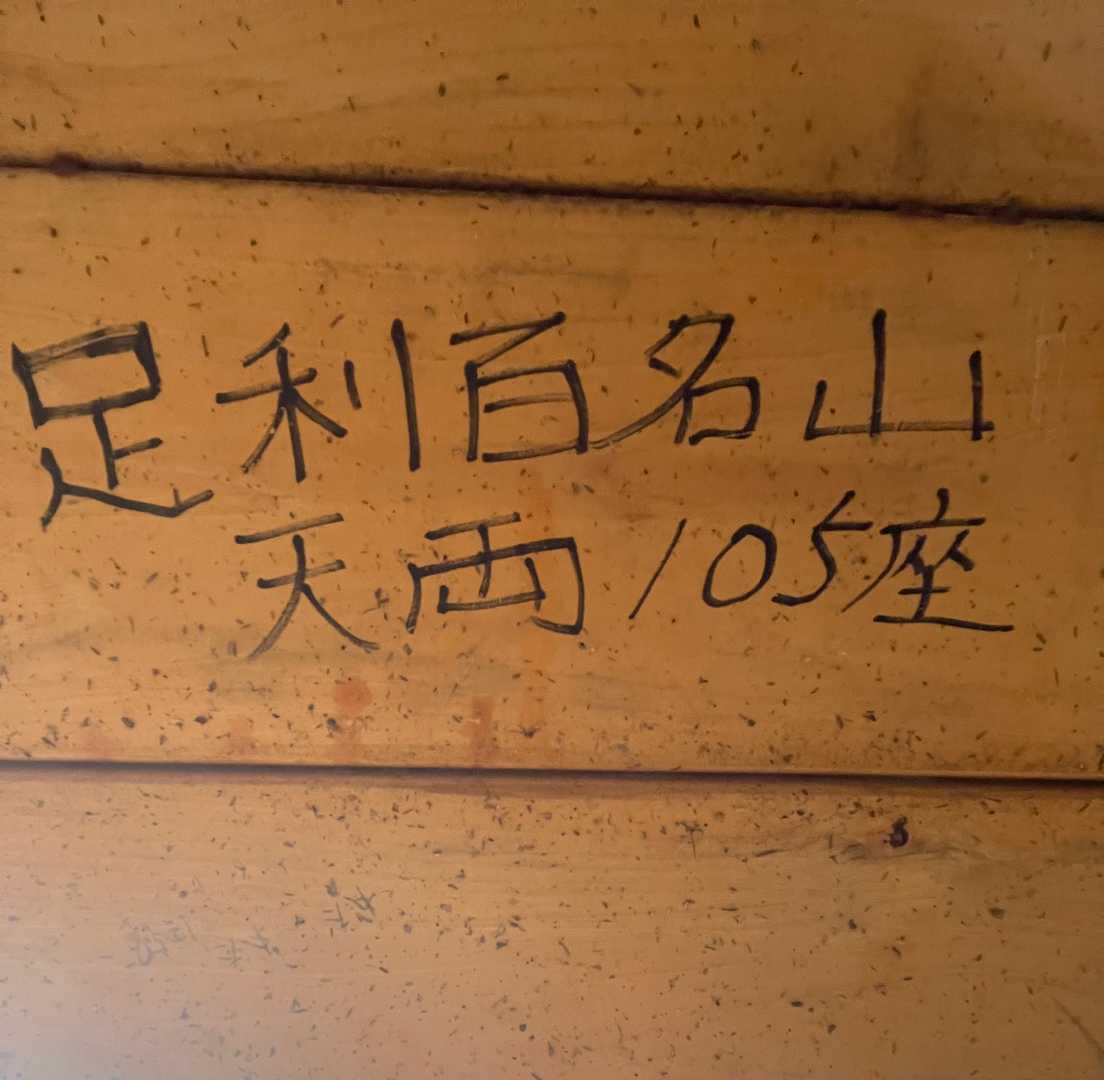 足利百名山
天両105座